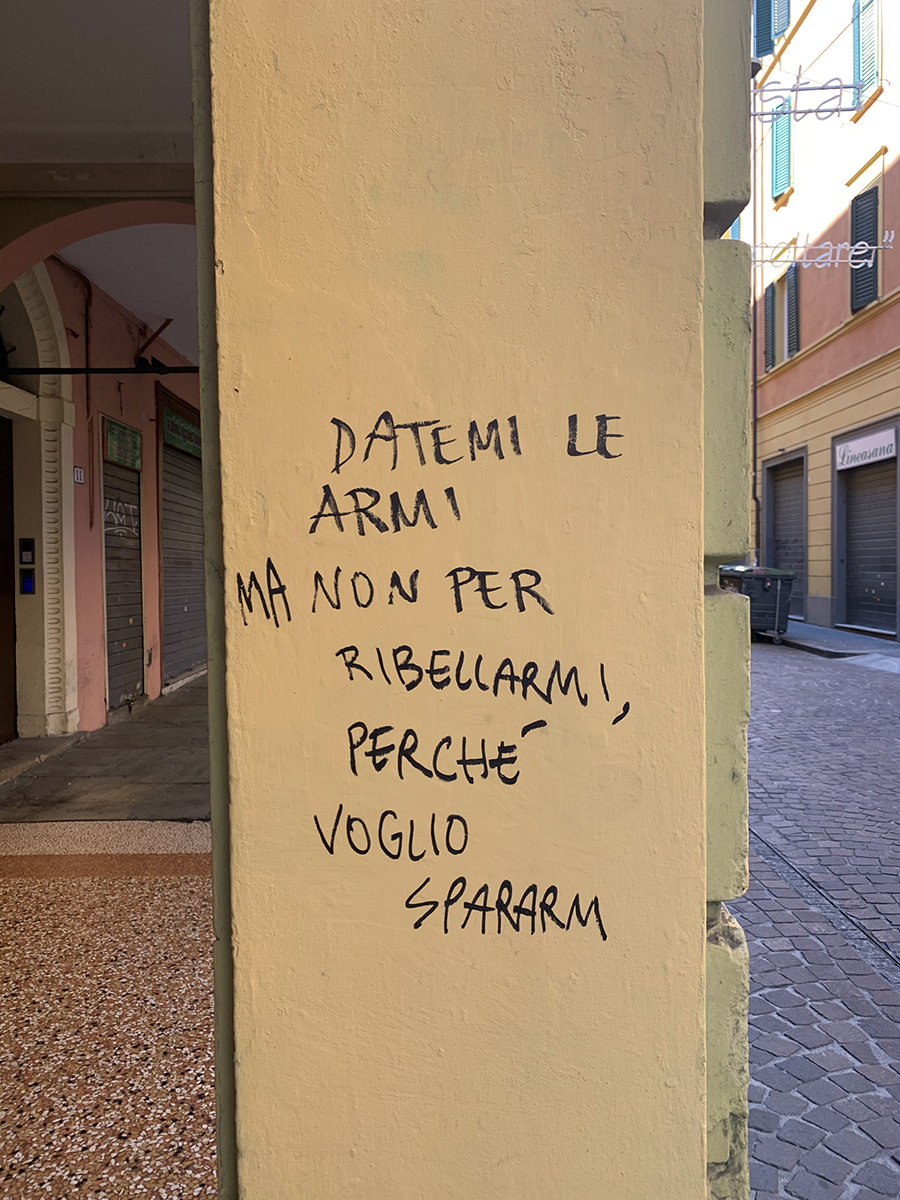 DATEMI LE
ARMI
MA NON PER
RIBELLARMI,
PERCHÉ
VOGLIO
SPARARM
star
Lineasana
11